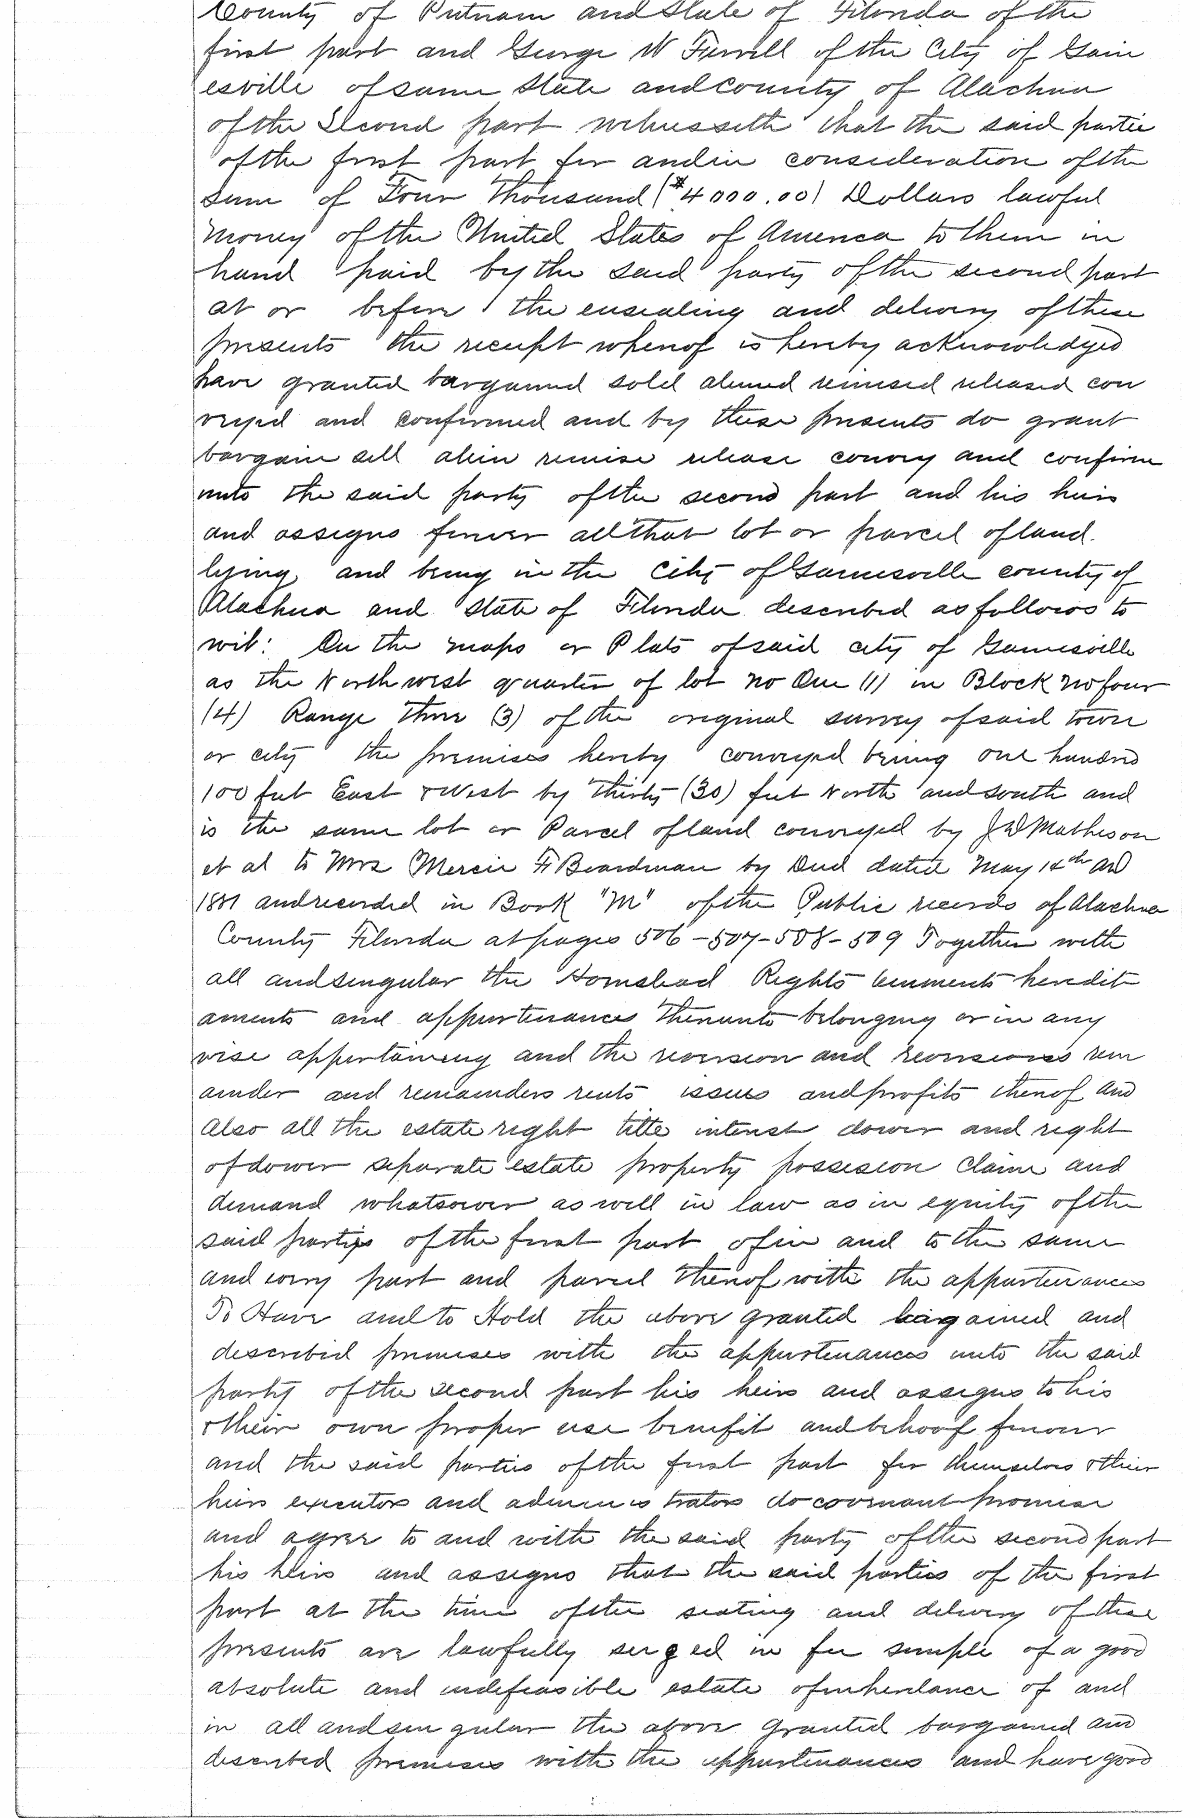 County of Putnam and State of Florida of the
first part and George W Ferrell of the City of Gain
esville of same State and county of Alachua
of the Second part witnesseth that the said partie
of the first part for and in consideration of the
Sum of Four Thousand ($4000.00) Dollars lawful
money of the United States of America to them in
hand paid by the said party of the second part
at or before the ensealing and delivery of these
presents the receipt whereof is hereby acknowledged
have granted bargained sold aliened remised released con
veyed and confirmed and by these presents do grant
bargain sell alien remise release convey and confirm
unto the said party of the second part and his heirs
and assigns forever all that lot or parcel of land.
lying and being in the City of Gainesville county of
Alachua and State of Florida described as follows to
wit: On the maps or Plats of said city of Gainesville
as the North west quarter of lot no One (1) in Block no four
(4) Range three (3) of the original survey of said town
or city the premises hereby conveyed being one hundred
100 feet East & West by thirty (30) feet North and south and
is the same lot or Parcel of land conveyed by J D Matheson
et al to Mrs Mercie F Boardman by Deed dated May 14th AD
1887 and recorded in Book "M" of the Public records of Alachua
County Florida at pages 506-507-508-509 Together with
all and singular the Homstead Rights tenements heredit
aments and appurtenances thereunto belonging or in any
wise appertaining and the reversion and reversions rem
ainder and remainders rents issues and profits thereof and
also all the estate right title interest dower and right
of dower separate estate property possession claim and
demand whatsoever as well in law as in equity of the
said parties of the first part of in and to the same
and every part and parcel thereof with the appurtenances
To Have and to Hold the above granted bargained and
described premises with the appurtenances unto the said
party of the second part his heirs and assigns to his
& their own proper use benefit and behoof forever
and the said parties of the first part for themselves & their
heirs executors and administrators do covenant promise
and agree to and with the said party of the second part
his heirs and assigns that the said parties of the first
part at the time of the sealing and delivery of these
presents are lawfully serged in fee simple of a good
absolute and indefeasible estate of inheritance of and
in all and singular the above granted bargained and
described premises with the appurtenances and have good